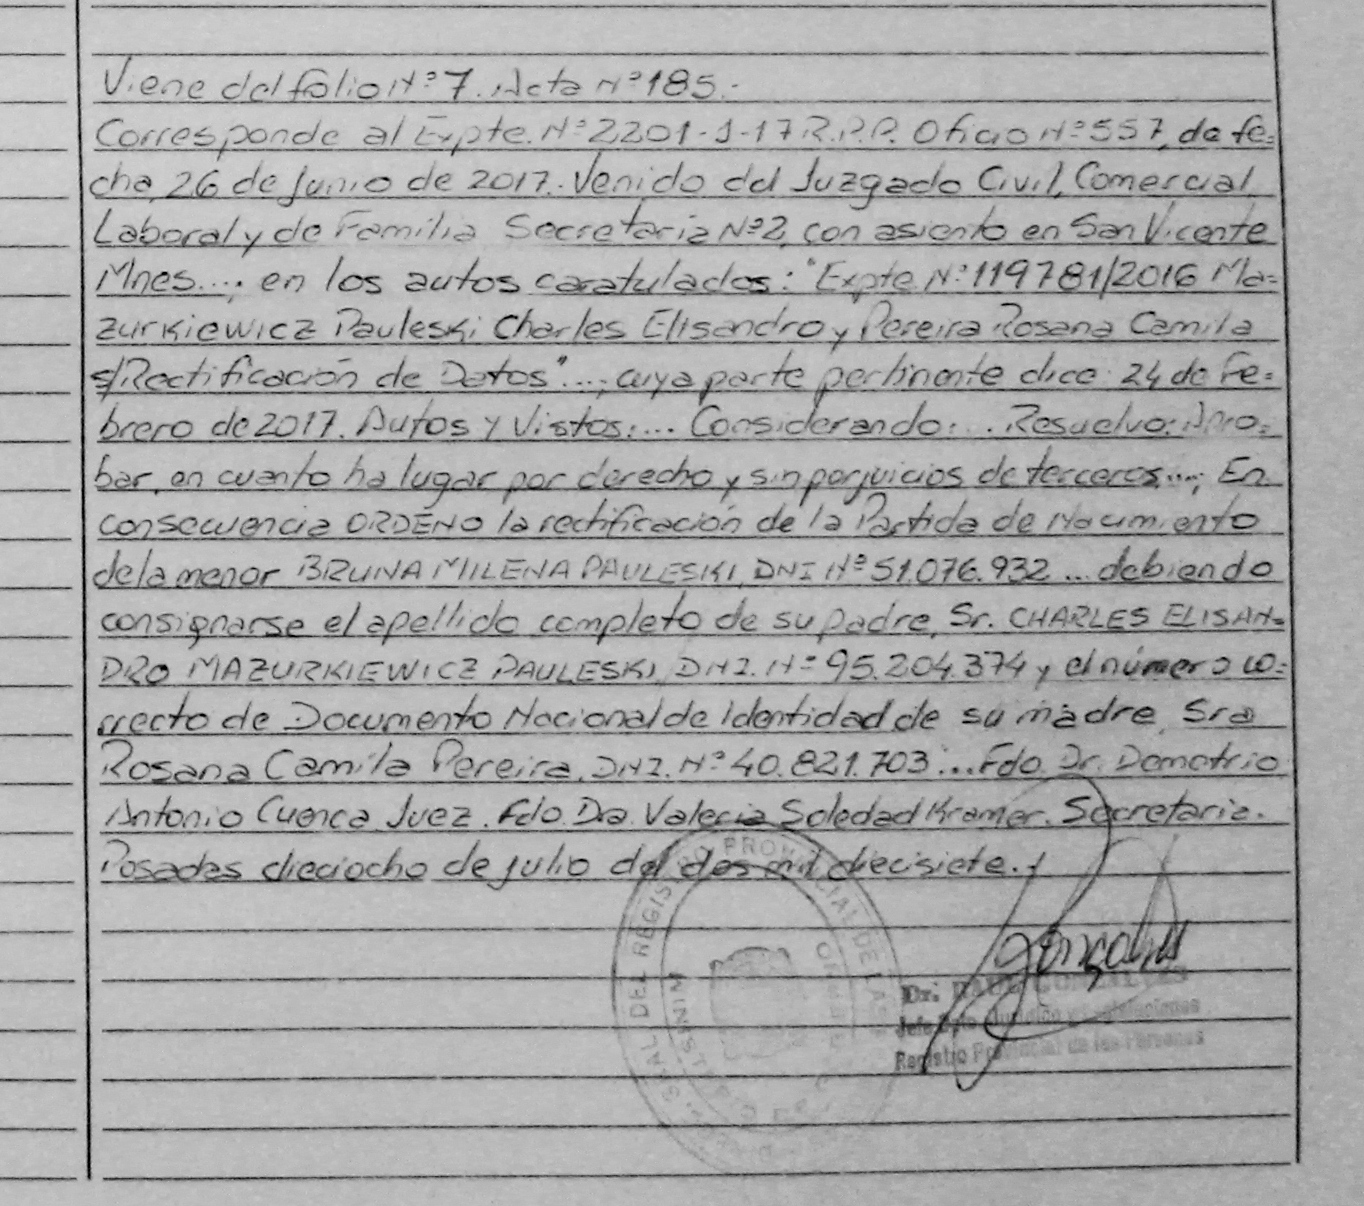 Viene del folio Nº 7. Acta Nº 185.-
Corresponde al Expte. Nº 2201-J-17 R.P.P. Oficio Nº 557, de fe-
cha, 26 de Junio de 2017. Venido del Juzgado Civil, Comercial,
Laboral y de Familia Secretaria Nº 2, con asiento en San Vicente
Mnes...; en los autos caratulados: "Expte Nº 119781/2016 Ma-
zurkiewicz Pauleski Charles Elisandro y Pereira Rosana Camila
s/Rectificación de Datos"...; cuya parte pertinente dice: 24 de Fe-
brero de 2017. Autos y Vistos:... Considerando:... Resuelvo: Apro-
bar, en cuanto ha lugar por derecho y sin perjuicios de terceros...; En
consecuencia ORDENO la rectificación de la Partida de Nacimiento
de la menor BRUNA MILENA PAULESKI, DNI Nº 51.076.932 ... debiendo
consignarse el apellido completo de su padre, Sr. CHARLES ELISAN-
DRO MAZURKIEWICZ PAULESKI, DNI. Nº 95.204.374 y el número co-
rrecto de Documento Nacional de Identidad de su madre, Sra
Rosana Camila Pereira, DNI. Nº 40.821.703 ... Fdo. Dr. Demetrio
Antonio Cuenca Juez. Fdo. Dra. Valeria Soledad Kramer. Secretaria.
Posadas dieciocho de julio del dos mil diecisiete.-
DEL REGISTRO PROVINCIAL DE LAS
Dr. RAUL GONCALVES
Jefe Dpto Jurídico y Legislaciones
Registro Provincial de las Personas